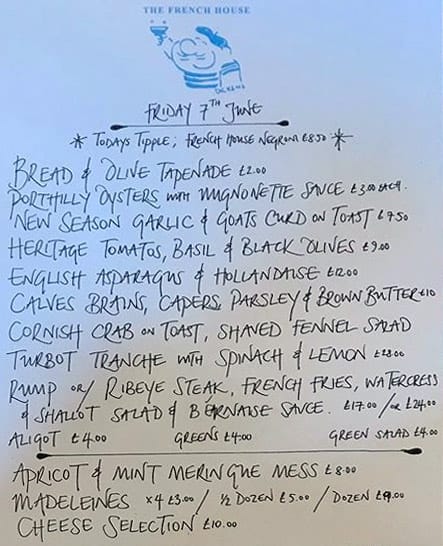 THE FRENCH HOUSE
FRIDAY 7TH JUNE
* TODAYS TIPPLE; FRENCH HOUSE NEGRONI £8.50 *
BREAD & OLIVE TAPENADE £2.00
PORTHILLY OYSTERS WITH MIGNONETTE SAUCE £3.00 EACH.
NEW SEASON GARLIC & GOATS CURD ON TOAST £7.50
HERITAGE TOMATOS, BASIL & BLACK OLIVES £9.00
ENGLISH ASPARAGUS & HOLLANDAISE £12.00
CALVES BRAINS, CAPERS, PARSLEY & BROWN BUTTER £10
CORNISH CRAB ON TOAST, SHAVED FENNEL SALAD
TURBOT TRANCHE WITH SPINACH & LEMON £28.00
RUMP OR/ RIBEYE STEAK, FRENCH FRIES, WATERCRESS
& SHALLOT SALAD & BÉARNAISE SAUCE. £17.00 / OR £24.00
ALIGOT £4.00 GREENS £4.00 GREEN SALAD £4.00
APRICOT & MINT MERINGUE MESS £8.00
MADELEINES x4 £3.00 / ½ DOZEN £5.00 / DOZEN £9.00
CHEESE SELECTION £10.00